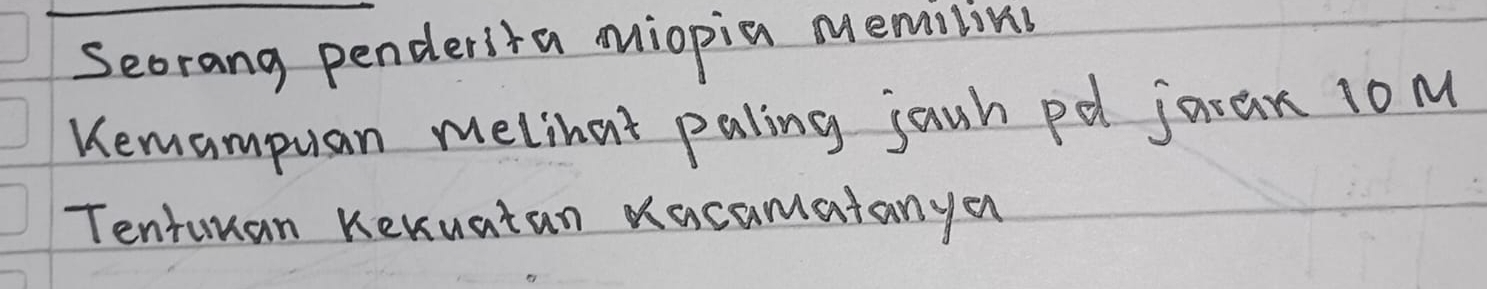 Seorang penderita miopia memiliki
Kemampuan melihat paling jauh pd jarak 10 M
Tentukan Kekuatan Kacamatanya